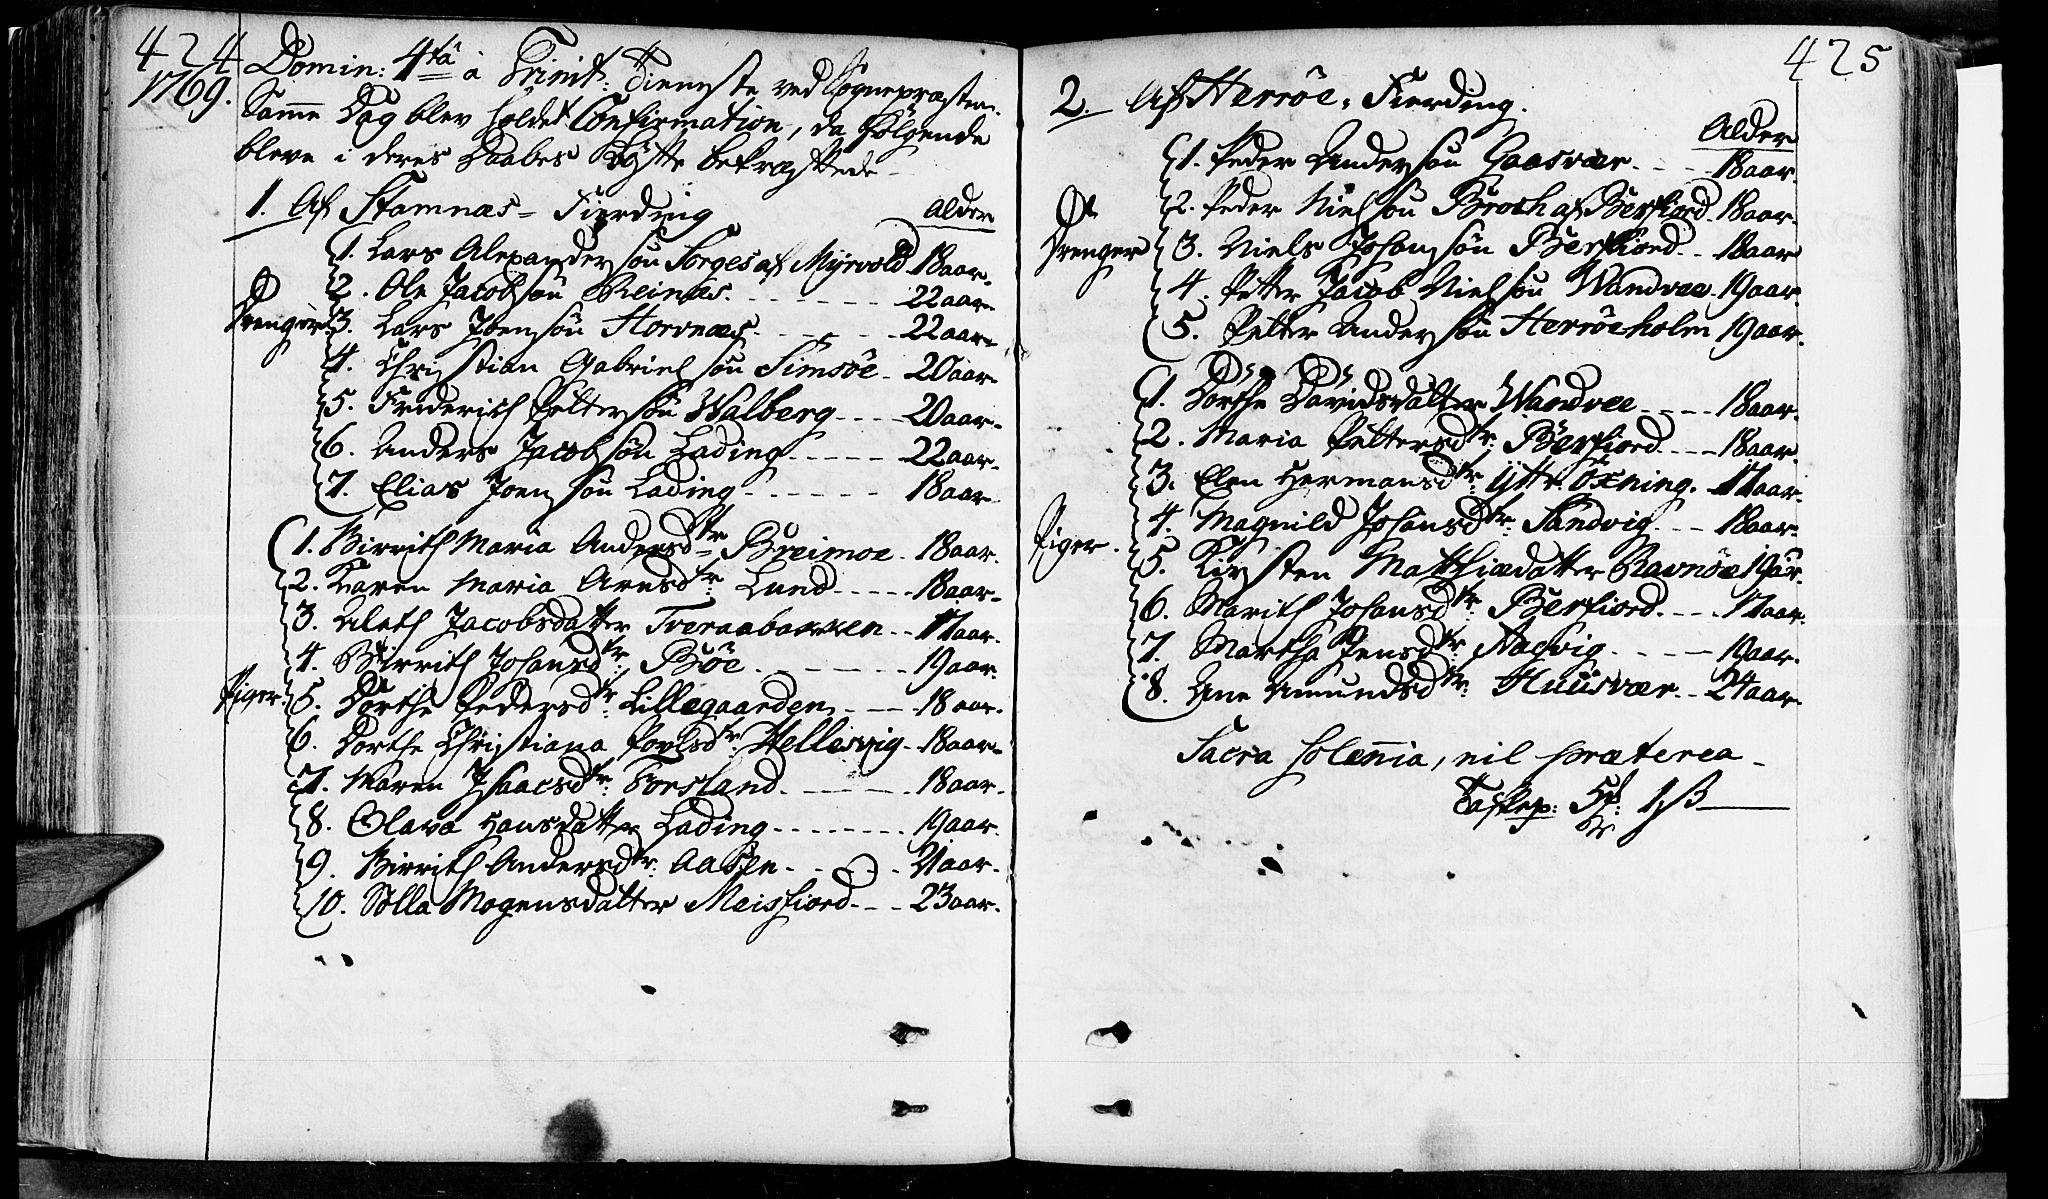 424
1769.
Domin: 4tâ à Trinit: Tieneste ved Sognepræsten.
Samme Dag blev holdet Confirmation, da følgende
bleve i deres Daabes Løfte bekræftede
1. Af Stamnæs = Fierding Alder
Drenger
1. Lars Alexandersøn Sorges af Myrvold 18 aar.
2. Ole Jacobsøn Reinæs. 22 aar.
3. Lars Joensøn Horvnæs. 22 aar.
4. Christian Gabrielsøn Simsöe 20 aar.
5. Friderich Pettersøn Walberg 20 aar.
6. Anders Jacobsøn Lading 22 aar.
7. Elias Joensøn Lading 18 aar.
Piger.
1. Birrith Maria Andersdtr: Breimoe 18 aar.
2. Karen Maria Arnsdtr: Lund 18 aar.
3. Aleth Jacobsdatter Tveraabakken 17 aar.
4. Birrith Johansdtr: Böe 19 aar.
5. Dorthe Pedersdtr: Lillegaarden 18 aar.
6. Dorthe Christiana Povlsdtr: Hellesvig 18 aar.
7. Maren Isaacsdtr: Forsland 18 aar.
8. Olava Hansdatter Lading 19 aar.
9. Birrith Andersdtr: Aasen 21 aar.
10. Mogensdatter Meisfiord 23 aar.
425
2. Af Herröe = Fierding.
Alder
Drenger
1. Peder Andersøn Gaasvær 18 aar.
2. Peder Nielsøn Broch af Berfiord 18 aar.
3. Niels Johansøn Berfiord 18 aar
4. Petter Jacob Nielsøn Wandvee 19 aar.
5. Petter Andersøn Herröeholm 19 aar.
Piger.
1. Dorthe Davidsdatter Wandvee 18 aar.
2. Maria Pettersdtr: Berfiord 18 aar.
3. Elen Hermansdtr: Ytter Öxning. 17 aar.
4. Magnild Johansdtr: Sandvig 18 aar.
5. Kirsten Matthiædatter Ravnöe 19 aar.
6. Marith Johansdtr: Berfiord 17 aar.
7. Martha Jensdtr: Aagvig 19 aar.
8. Ane Amundsdtr: Huusvær 24 aar.
Sacra solennia, nil præterea